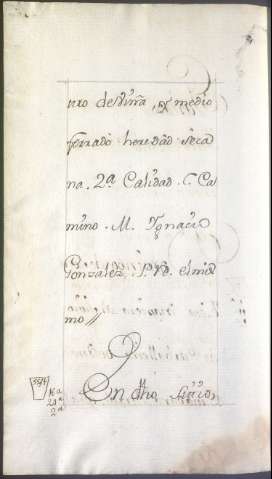 nio de Viña, y medio
forrado heredad seca
na. 2ª Calidad. C. Ca
mino. M. Ignacio
Gonzalez. P. V. el mis
mo //
En dho sitio
1ª
2ª